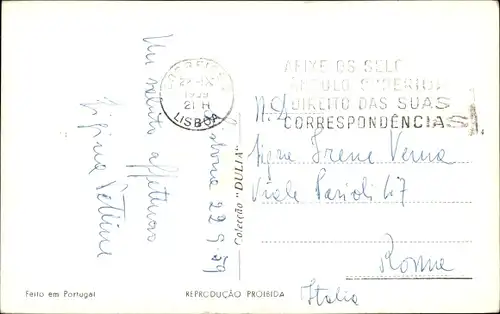 Un saluto affettuoso
Lisbona 22-9-59
CORREIOS
1959
21 H
LISBOA
AFIXE OS SELO
ÂNGULO SUPERIOR
DIREITO DAS SUAS
CORRESPONDÊNCIAS
Sigra Irene Verna
Viale Parioli 47
Roma
Italia
Colecção "DULIA"
Feito em Portugal
REPRODUÇÃO PROIBIDA